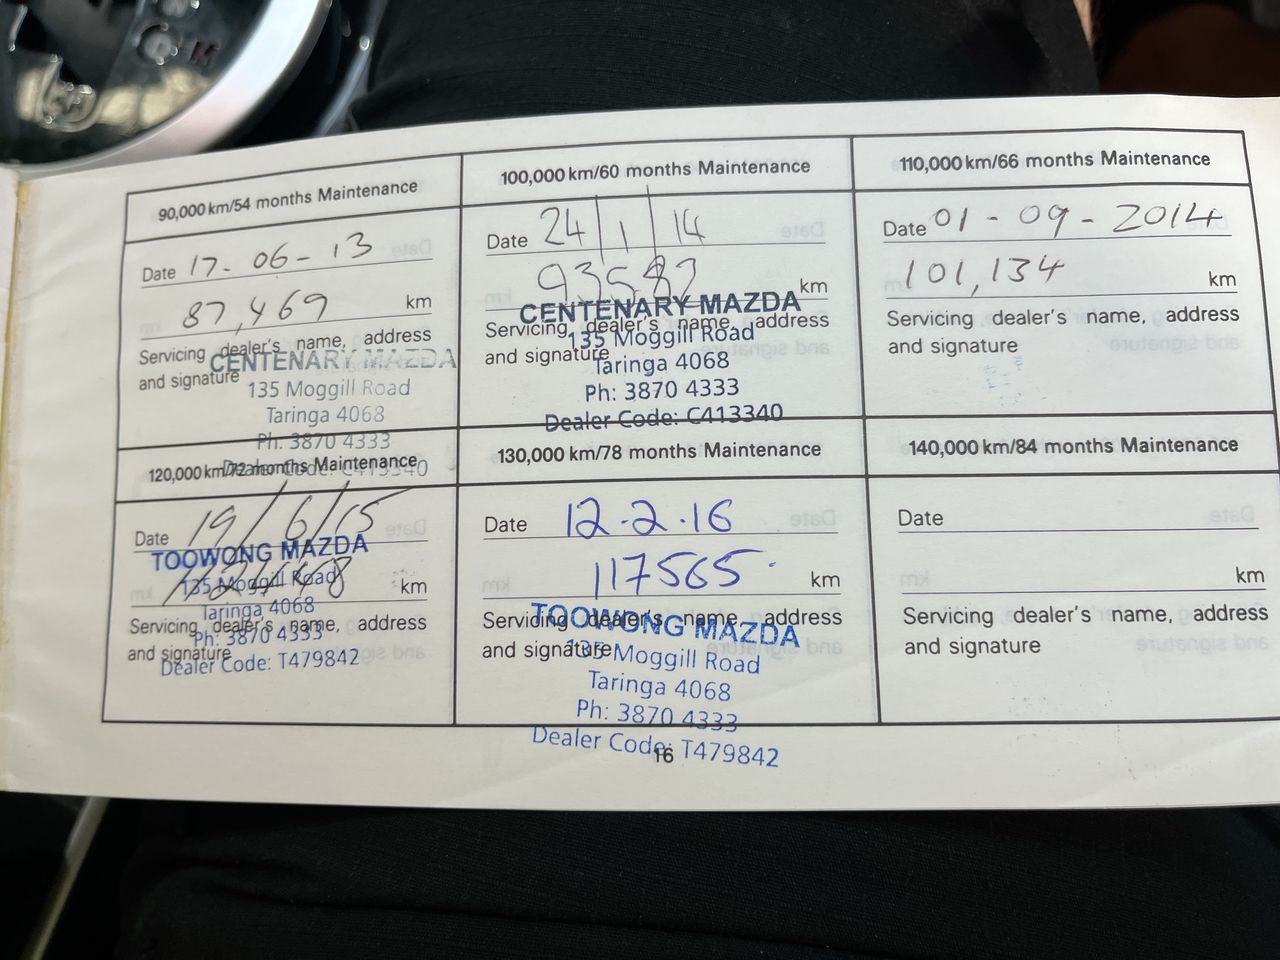 90,000 km/54 months Maintenance
Date 17-06-13
87,469 km
Servicing dealer's name, address
and signature
CENTENARY MAZDA
135 Moggill Road
Taringa 4068
Ph: 3870 4333
100,000 km/60 months Maintenance
Date 24/1/14
93582 km
Servicing dealer's name, address
and signature
CENTENARY MAZDA
135 Moggill Road
Taringa 4068
Ph: 3870 4333
Dealer Code: C413340
110,000 km/66 months Maintenance
Date 01-09-2014
101,134 km
Servicing dealer's name, address
and signature
120,000 km/72 months Maintenance
Date 19/6/15
km
Servicing dealer's name, address
and signature
TOOWONG MAZDA
135 Moggill Road
Taringa 4068
Ph: 3870 4333
Dealer Code: T479842
130,000 km/78 months Maintenance
Date 12.2.16
117565 km
Servicing dealer's name, address
and signature
TOOWONG MAZDA
135 Moggill Road
Taringa 4068
Ph: 3870 4333
Dealer Code: T479842
140,000 km/84 months Maintenance
Date
km
Servicing dealer's name, address
and signature
16